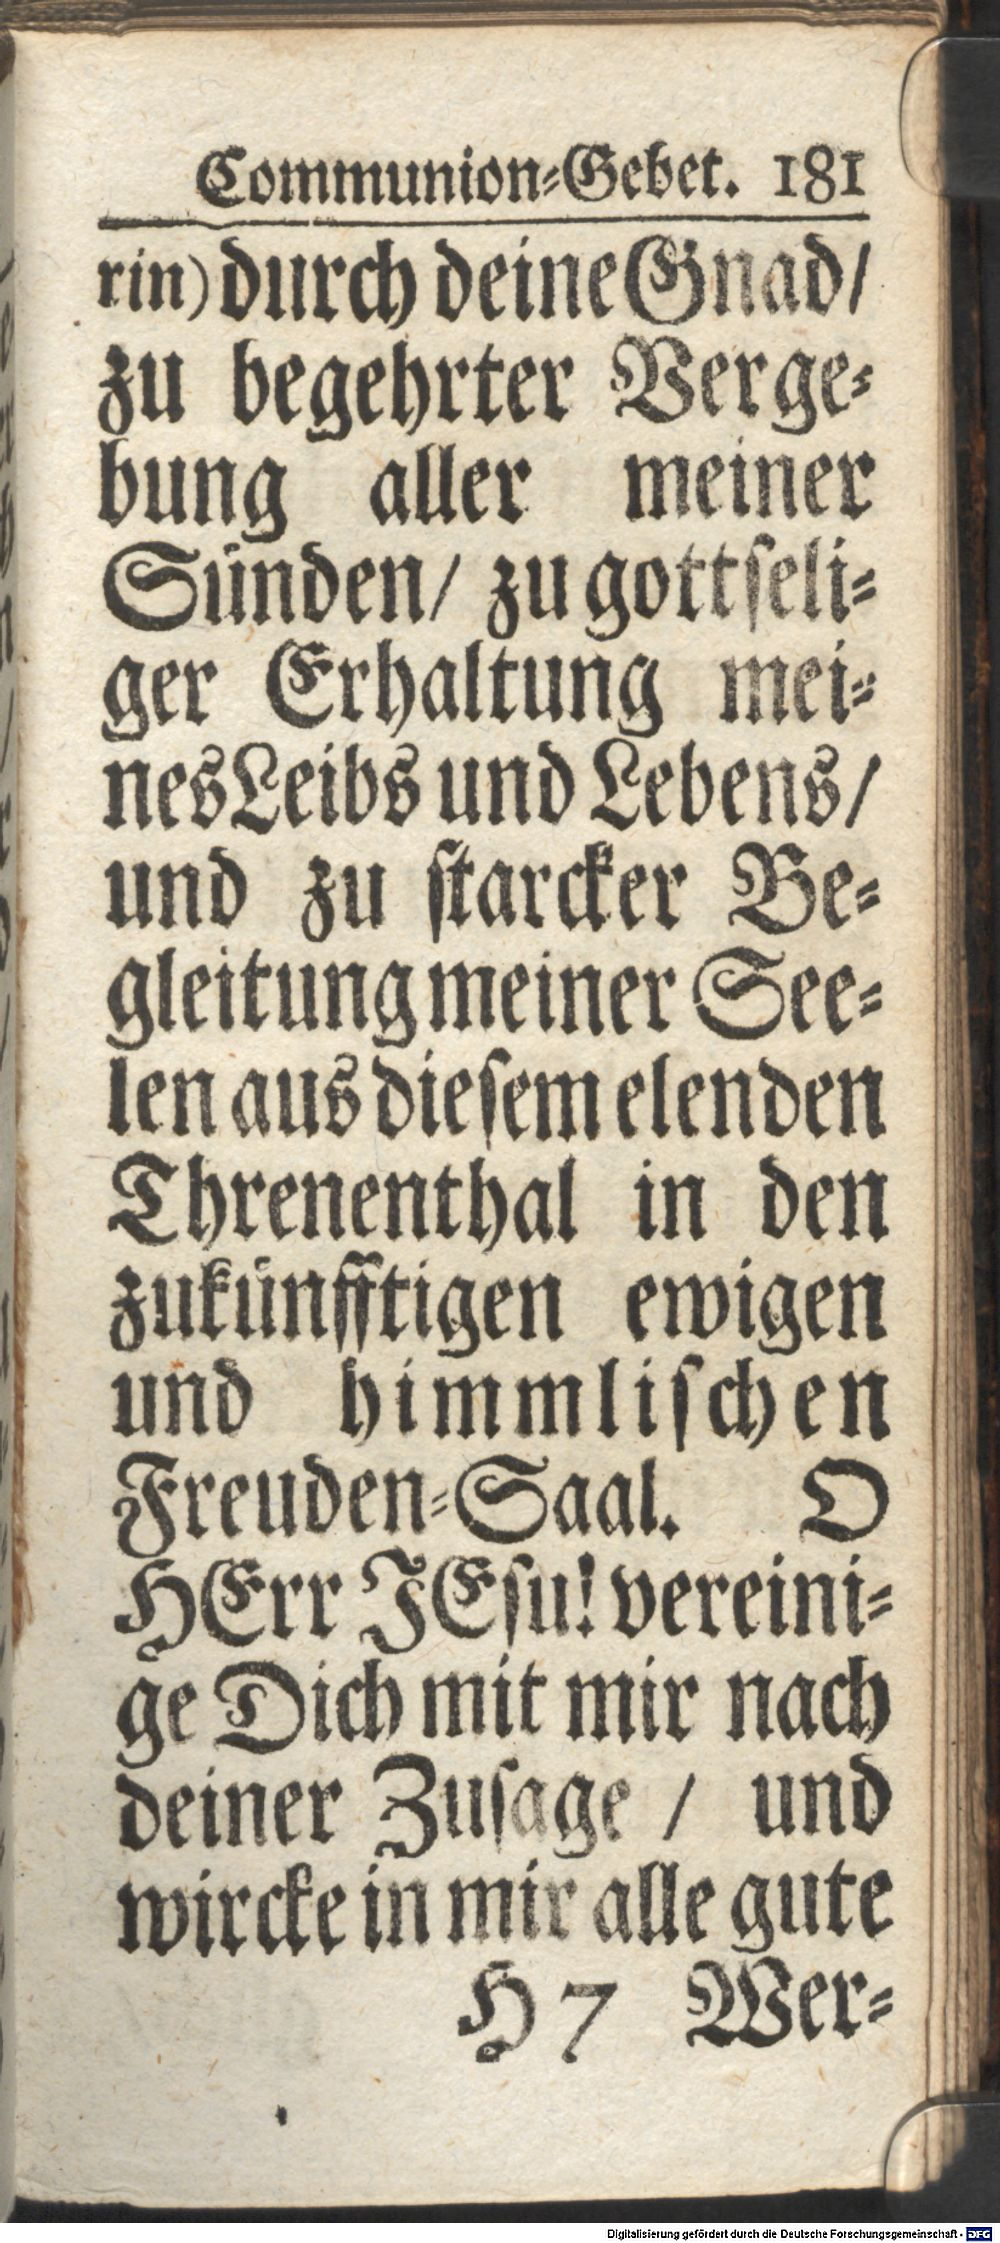 Communion-Gebet. 181
rin) durch deine Gnad/
zu begehrter Verge-
bung aller meiner
Sünden/ zu gottseli-
ger Erhaltung mei-
nes Leibs und Lebens/
und zu starcker Be-
gleitung meiner See-
len aus diesem elenden
Threnenthal in den
zukünfftigen ewigen
und himmlischen
Freuden-Saal. O
HErr JEsu! vereini-
ge Dich mit mir nach
deiner Zusage / und
wircke in mir alle gute
H 7 Wer-
Digitalisierung gefördert durch die Deutsche Forschungsgemeinschaft - DFG